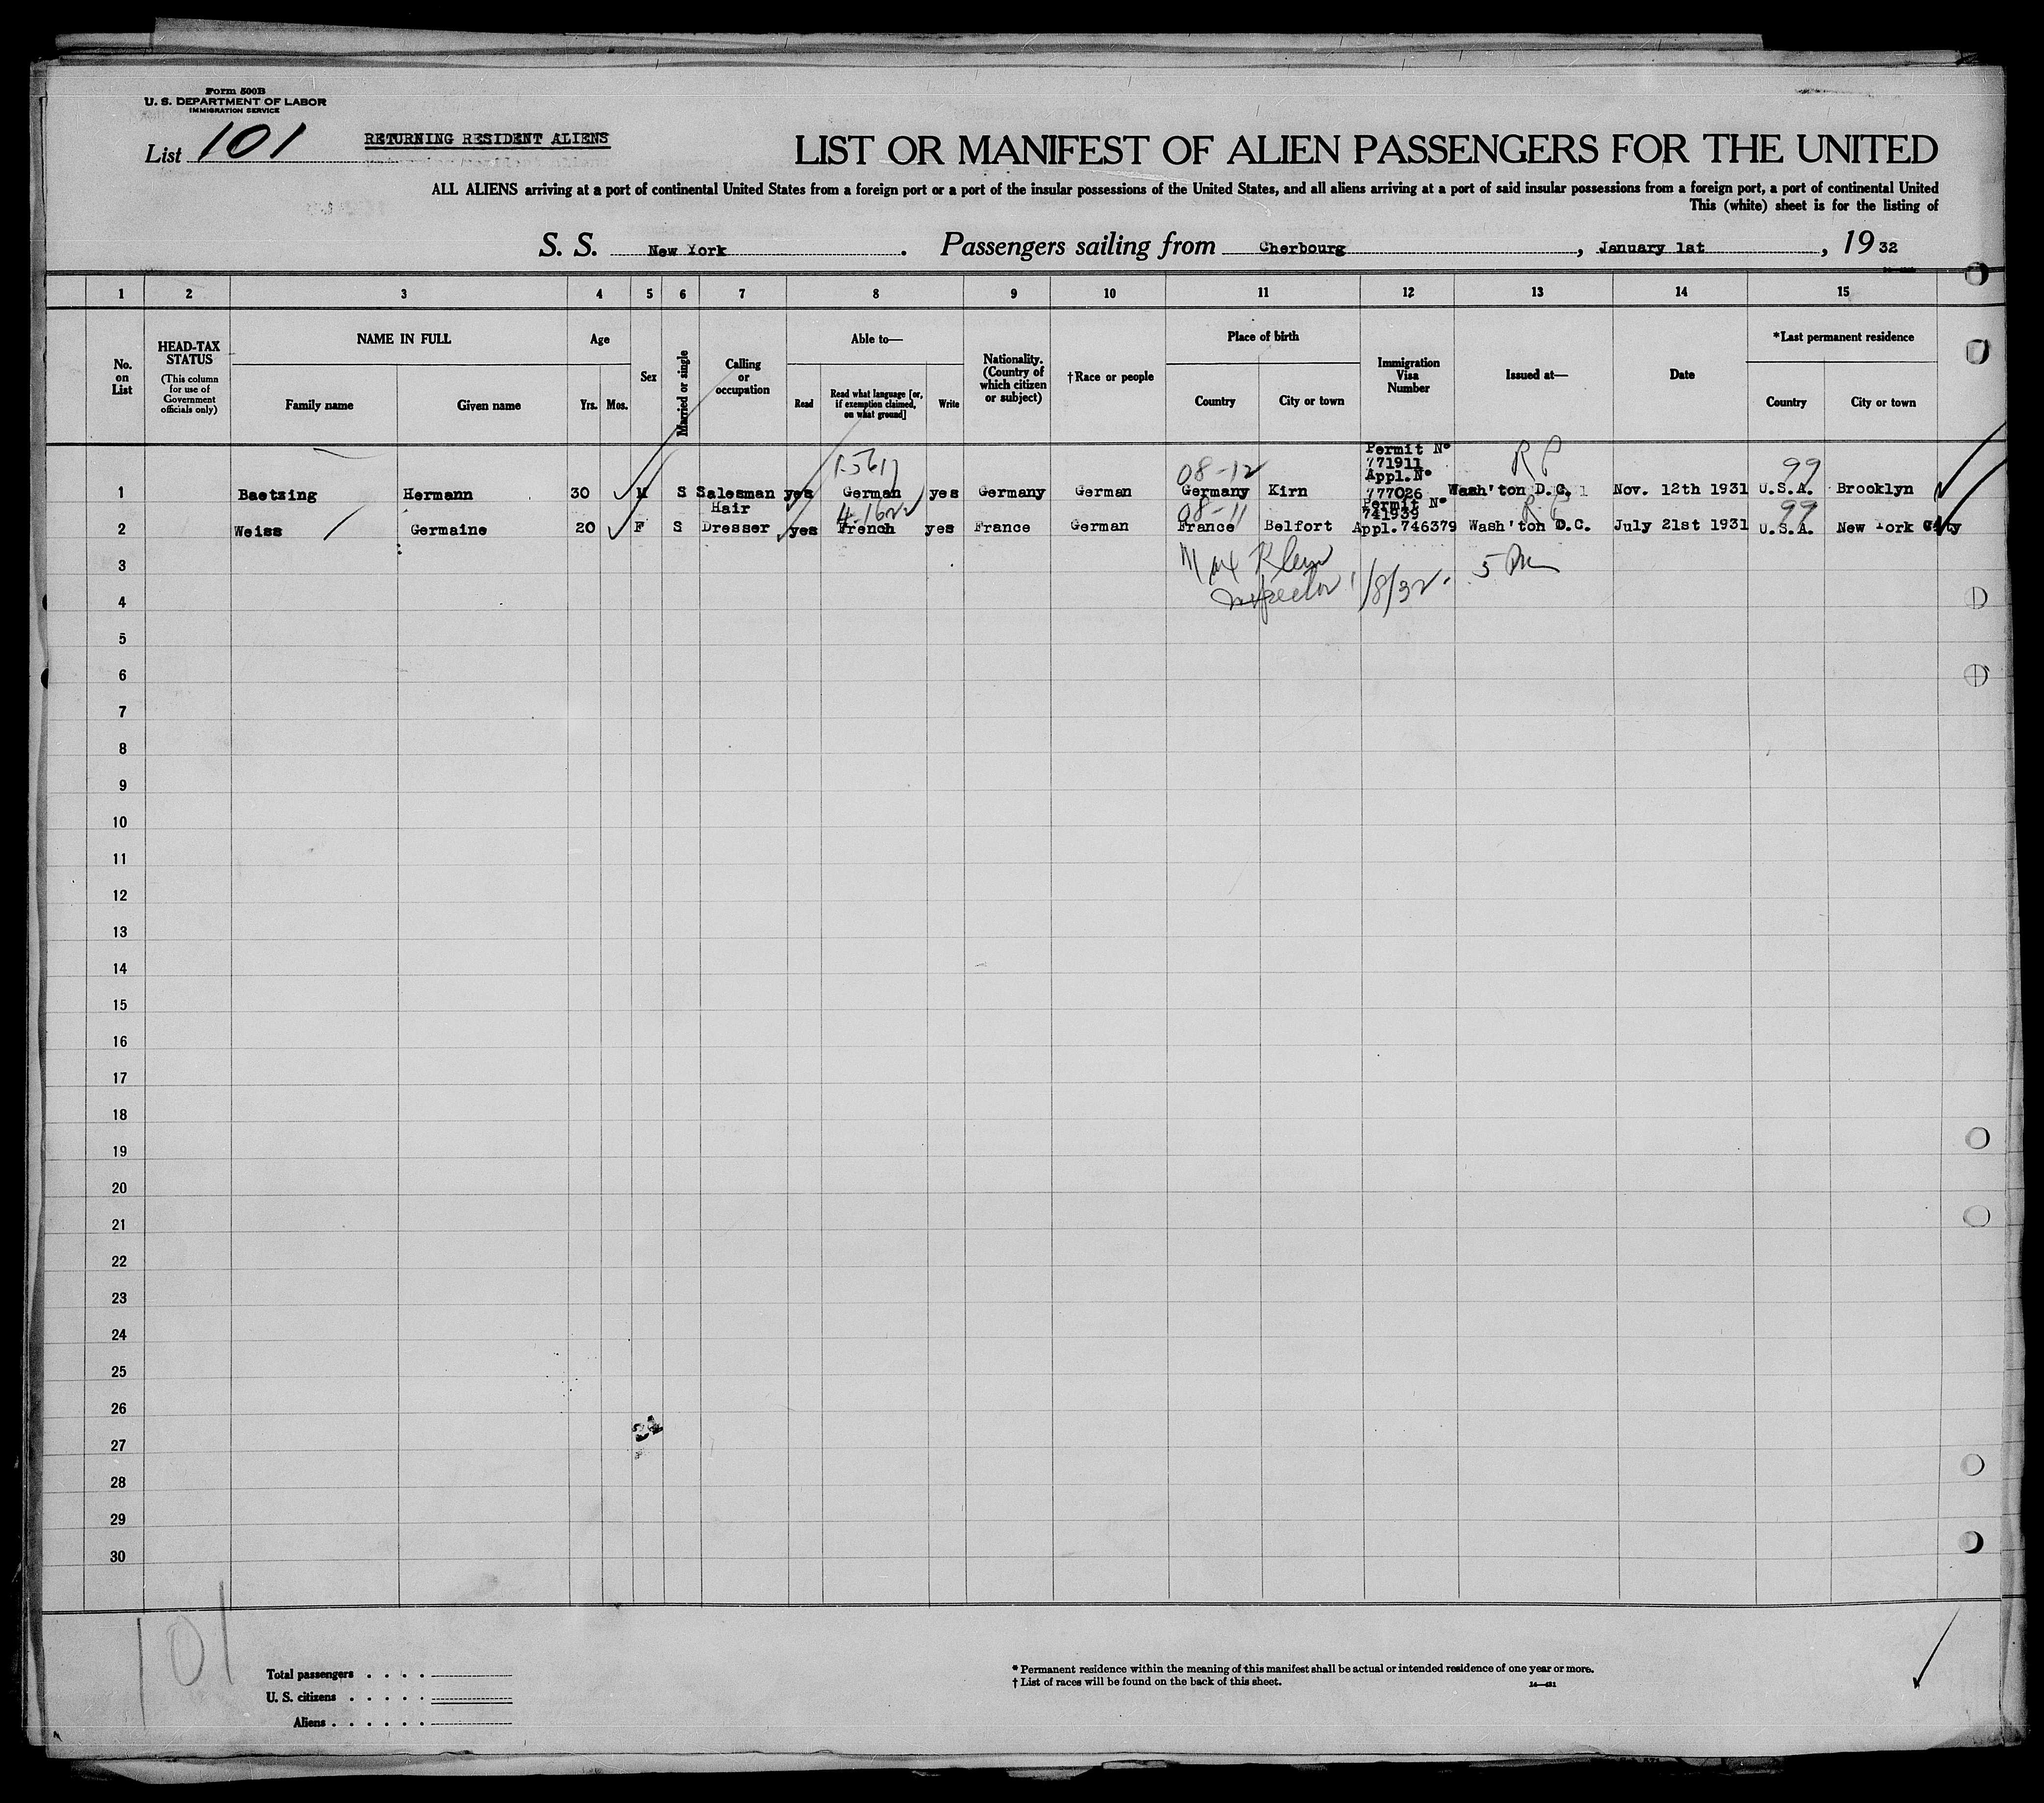 Form 500B
U. S. DEPARTMENT OF LABOR
IMMIGRATION SERVICE
List 101
RETURNING RESIDENT ALIENS
LIST OR MANIFEST OF ALIEN PASSENGERS FOR THE UNITED
ALL ALIENS arriving at a port of continental United States from a foreign port or a port of the insular possessions of the United States, and all aliens arriving at a port of said insular possessions from a foreign port, a port of continental United
This (white) sheet is for the listing of
S. S. New York. Passengers sailing from Cherbourg, January 1st, 1932
1 2 3 4 5 6 7 8 9 10 11 12 13 14 15
No. on List
HEAD-TAX STATUS (This column for use of Government officials only)
NAME IN FULL
Family name
Given name
Age
Yrs. Mos.
Sex
Married or single
Calling or occupation
Able to—
Read
Read what language [or, if exemption claimed, on what ground]
Write
Nationality. (Country of which citizen or subject)
†Race or people
Place of birth
Country
City or town
Immigration Visa Number
Issued at—
Date
*Last permanent residence
Country
City or town
08-12
Permit Nº
771911
Appl.Nº
RP
99
1 Baetzing Hermann 30 M S Salesman yes German yes Germany German Germany Kirn 777026 Wash'ton D.C. Nov. 12th 1931 U.S.A. Brooklyn
Hair
08-11
Permit Nº
741939
RP
99
2 Weiss Germaine 20 F S Dresser yes French yes France German France Belfort Appl.746379 Wash'ton D.C. July 21st 1931 U.S.A. New York City
Max Klein
Inspector 1/8/32.
3
4
5
6
7
8
9
10
11
12
13
14
15
16
17
18
19
20
21
22
23
24
25
26
27
28
29
30
101
Total passengers . . . .
U. S. citizens . . . . .
Aliens . . . . . .
* Permanent residence within the meaning of this manifest shall be actual or intended residence of one year or more.
† List of races will be found on the back of this sheet.